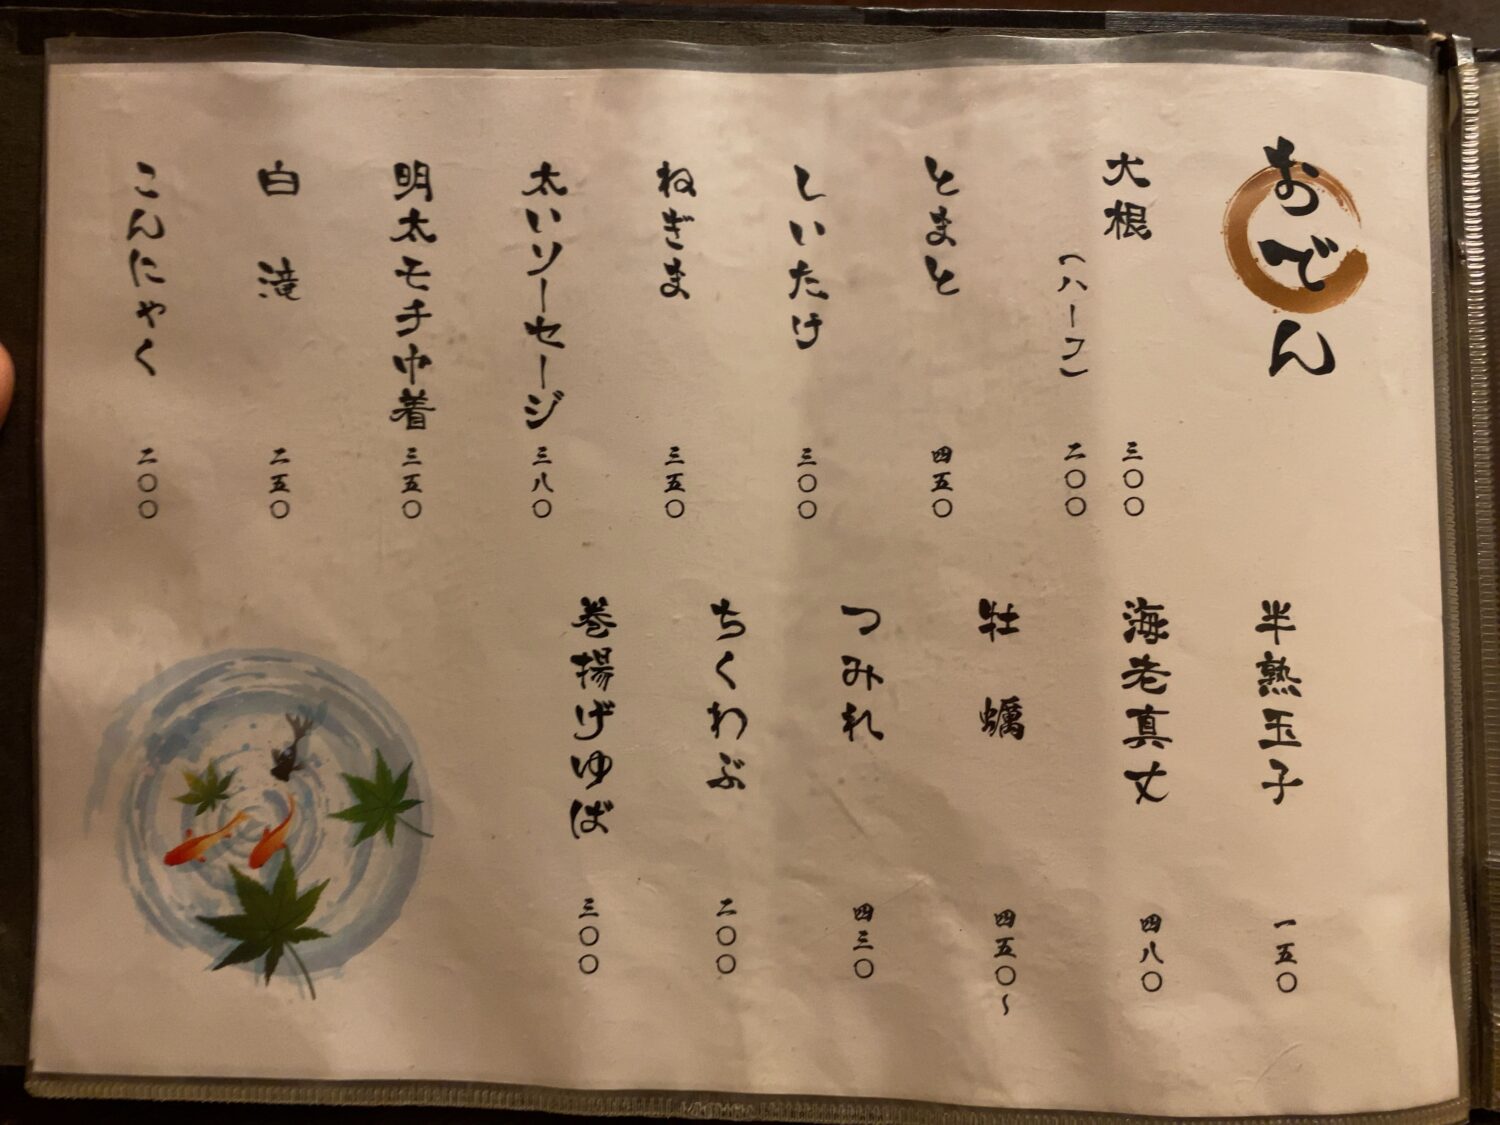 おでん
大根 三〇〇
(ハーフ) 二〇〇
とまと 四五〇
しいたけ 三〇〇
ねぎま 三五〇
太いソーセージ 三八〇
明太モチ巾着 三五〇
白滝 二五〇
こんにゃく 二〇〇
半熟玉子 一五〇
海老真丈 四八〇
牡蠣 四五〇~
つみれ 四三〇
ちくわぶ 二〇〇
巻揚げゆば 三〇〇